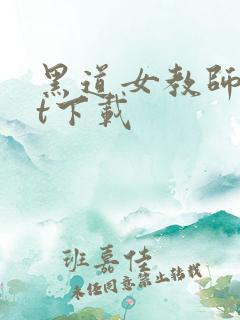 黑道女教師
t下載
班嘉佳
未任同意禁止转载